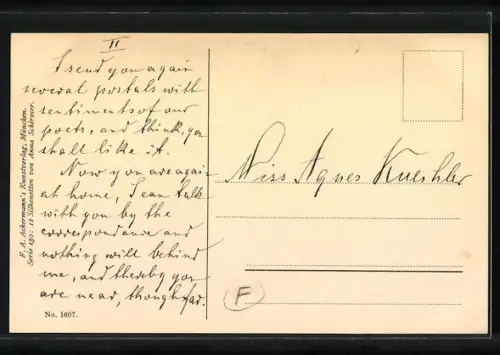 II
I send you again
several postals with
sentiments of our
poets, and think, you
shall like it.
Now you are again
at home, I can talk
with you by the
correspondance and
nothing will behind
me, and thereby you
are near, though far.
No. 1607.
F. A. Ackermann's Kunstverlag, München.
Serie 130: 12 Silhouetten von Anna Schirmer.
Miss Agnes Kueshler
F